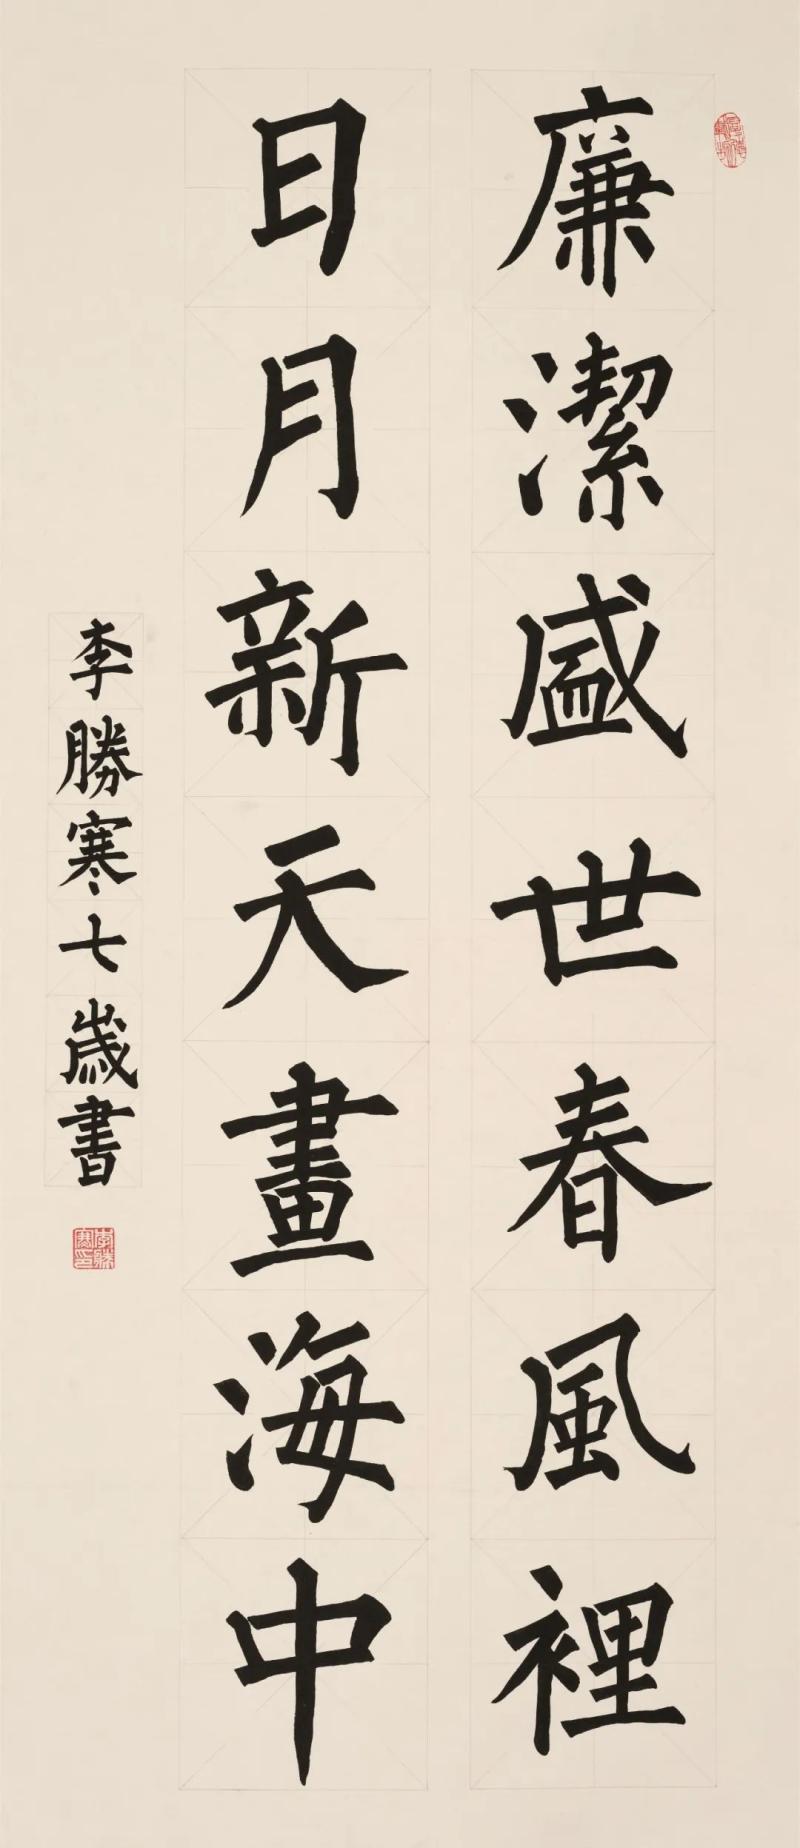 廉潔盛世春風裡
日月新天畫海中
李勝寒七歲書
李勝寒印